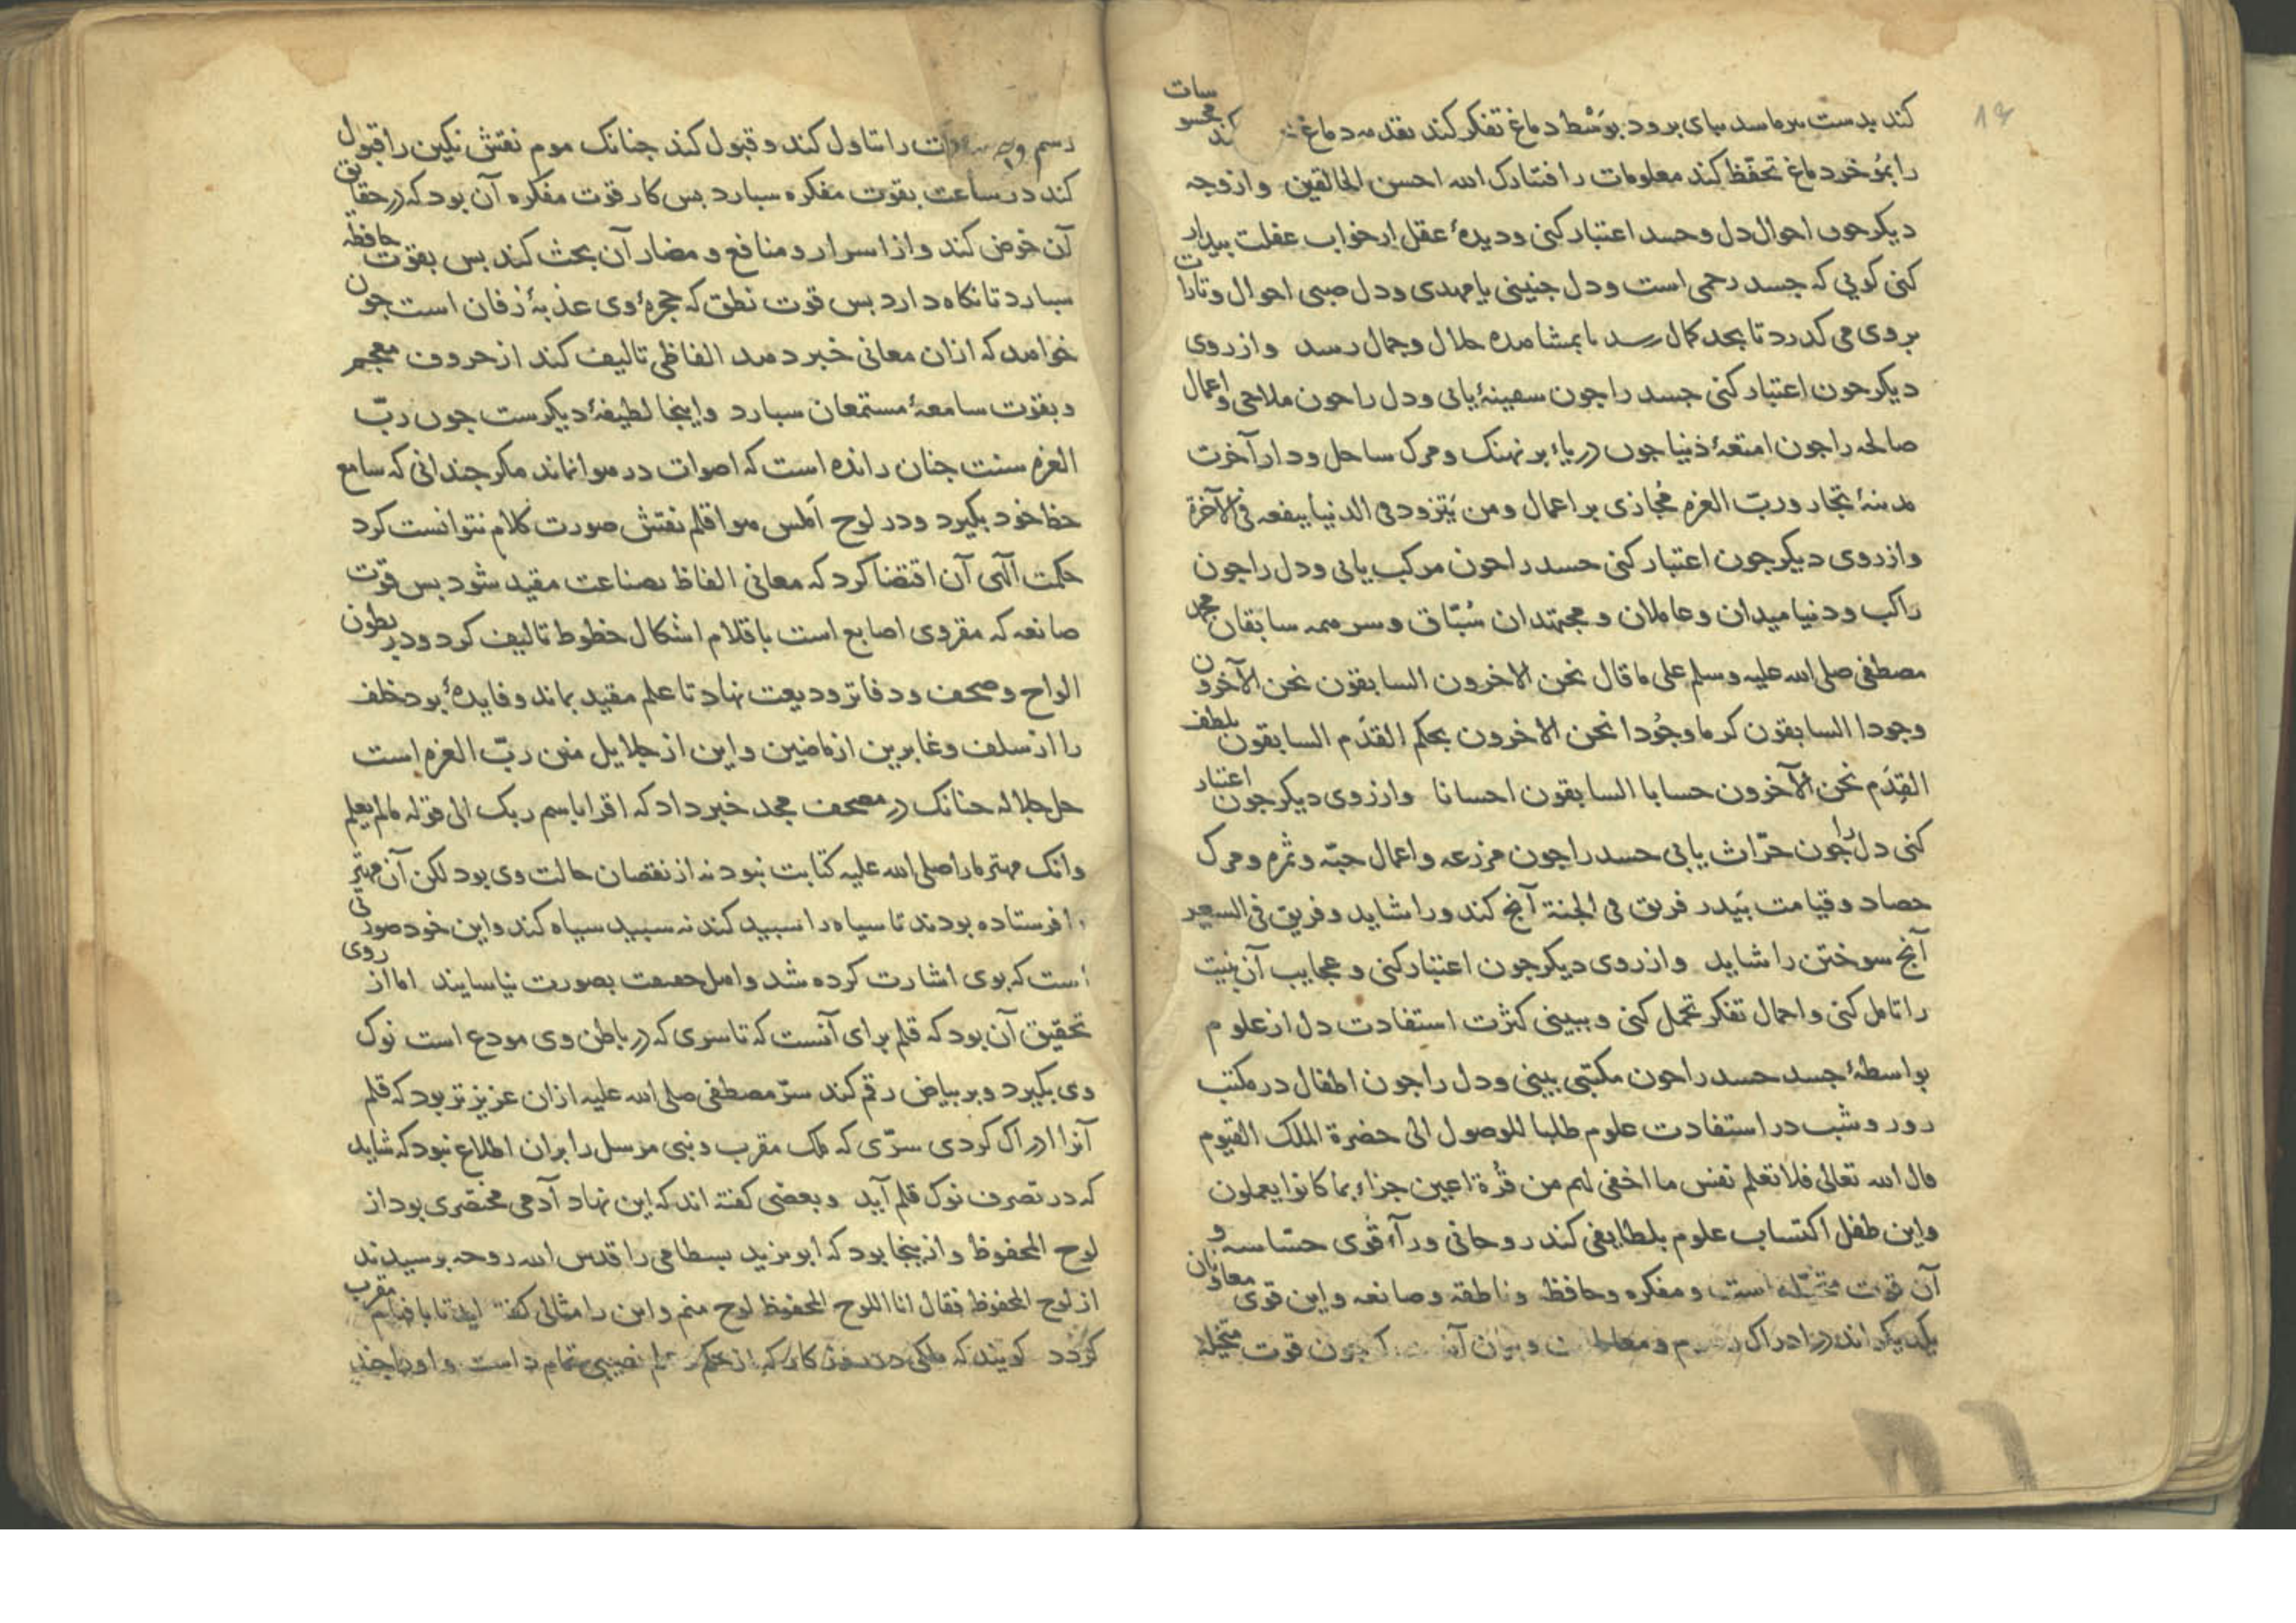 ١٩
کند بدست برماسد بپای برود بوسط دماغ تفکر کند بمقدمه دماغ محسوسات کند
را بمؤخر دماغ تحفظ کند معلومات را فتبارک الله احسن الخالقین وازوجه
دیکر چون احوال دل وجسد اعتبار کنی ودیدهٔ عقل از خواب غفلت بیدار
کنی کویی که جسد رحمی است ودل جنینی یا مهدی ودل صبی احوال وتارات
بروی می کذرد تا بحد کمال رسد تا بمشاهده جلال وجمال رسد وازروی
دیکر چون اعتبار کنی جسد را چون سفینهٔ یابی ودل را چون ملاحی واعمال
صالحه را چون امتعهٔ دنیا چون دریاء بر نهنک ومرک ساحل ودار آخرت
مدینهٔ تجار وربّ العزه مُجازی بر اعمال ومن یَتزود فی الدنیا ینفعه فی الآخرة
وازروی دیکر چون اعتبار کنی جسد را چون مرکب یابی ودل را چون
راکب ودنیا میدان وعاملان ومجتهدان سُبّاق وسر همه سابقان محمد
مصطفی صلی الله علیه وسلم علی ما قال نحن الاخرون السابقون نحن الآخرون
وجودا السابقون کرما وجُودا نحن الاخرون بحکم القدَم السابقون بلطف
القِدَم نحن الآخرون حسابا السابقون احسانا وازروی دیکر چون اعتبار
کنی دل را چون حرّاث یابی جسد را چون مزرعه واعمال حبّه وثمره ومرک
حصاد وقیامت بَیدر فریق فی الجنة آنچ کندورا شاید وفریق فی السعیر
آنچ سوختن را شاید وازروی دیکر چون اعتبار کنی وعجایب آن بنیت
را تامل کنی واحمال تفکر تحمل کنی وببینی کثرت استفادت دل از علوم
بواسطهٔ جسد جسد را چون مکتبی بینی ودل را چون اطفال در مکتب
روز وشب در استفادت علوم طلبا للوصول الی حضرة الملک القیوم
قال الله تعالی فلا تعلم نفس ما اخفی لهم من قُرة اعین جزاء بما کانوا یعملون
واین طفل اکتساب علوم بلطایفی کند روحانی وراء قُوی حسّاسه و
آن قوت متخیّله است ومفکره وحافظه وناطقه وصانعه واین قوی معاونان
یکدیکراند در ادراک رسوم ومعلومات وبیان آنست که چون قوت متخیله
رسم را تناول کند وقبول کند چنانک موم نقش نکین را قبول
کند در ساعت بقوت مفکره سبارد بس کار قوت مفکره آن بود که در حقایق
آن خوض کند وازاسرار ومنافع ومضار آن بحث کند بس بقوت حافظه
سبارد تا نکاه دارد بس قوت نطق که حجرهٔ وی عذبهٔ زفان است چون
خواهد که ازان معانی خبر دهد الفاظی تالیف کند از حروف معجم
وبقوت سامعهٔ مستمعان سبارد واینجا لطیفهٔ دیکرست چون ربّ
العزه سنت چنان رانده است که اصوات در هوا نماند مکر چندانی که سامع
حظ خود بکیرد ودر لوح اَملس هوا قلم نقش صورت کلام نتوانست کرد
حکمت الهی آن اقتضا کرد که معانی الفاظ بصناعت مقید شود بس قوت
صانعه که مقروی اصابع است باقلام اشکال خطوط تالیف کرد ودر بطون
الواح وصحف ودفاتر ودیعت نهاد تا علم مقید بماند وفایدهٔ بود خلف
را از سلف وغابرین از ماضین واین از جلایل منن ربّ العزه است
جل جلاله چنانک در مصحف مجد خبر داد که اقرا باسم ربک الی قوله مالم یعلم
وانک مهتر مارا صلی الله علیه کتابت نبود نه از نقصان حالت وی بود لکن آن مهتر
را فرستاده بودند تا سیاه را سبید کند نه سبید سیاه کند واین خود صورتی
است که بوی اشارت کرده شد واهل حقیقت بصورت نیاسایند اما از روی
تحقیق آن بود که قلم برای آنست که تا سری که در باطن وی مودع است نوک
وی بکیرد وبر بیاض رقم کند سرّ مصطفی صلی الله علیه ازان عزیز تر بود که قلم
آنرا ادراک کردی سرّی که ملک مقرب ونبی مرسل را بران اطلاع نبود که شاید
که در تصرف نوک قلم آید وبعضی کفته اند که این نهاد آدمی مختصری بود از
لوح المحفوظ وازینجا بود که ابو یزید بسطامی را قدس الله روحه برسیدند
از لوح المحفوظ فقال انا اللوح المحفوظ لوح منم واین را مثالی کفته اید تا بافهام مقرب
کردد کویند که ملکی در روزکار که از حکم نصیبی تمام داشت واورا چند